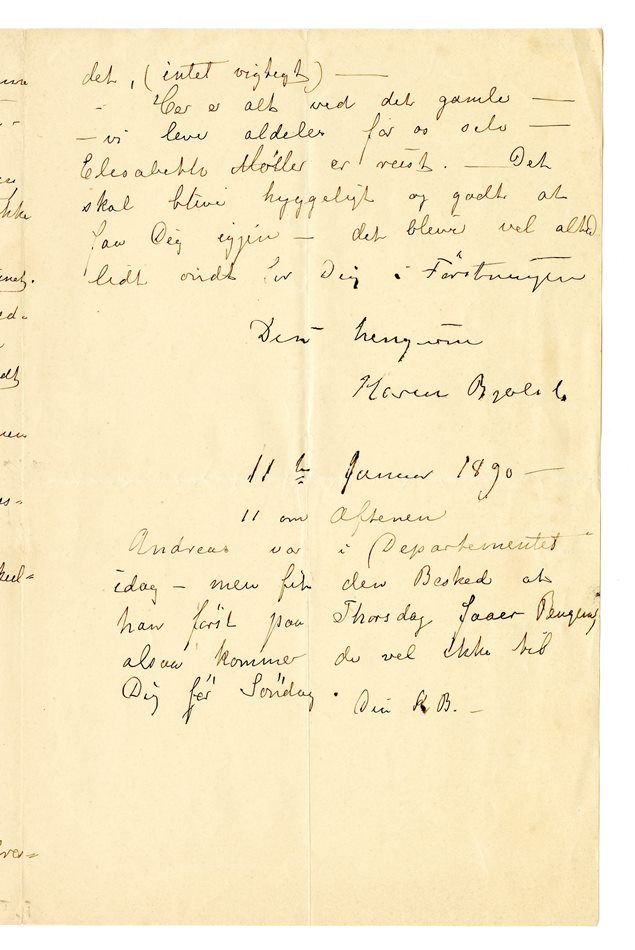 det, (intet vigtigt) —
- Her er alt ved det gamle —
- vi leve aldeles for os selv —
Elisabeth Møller er reist. — Det
skal blive hyggeligt og godt at
faa Dig igjen — det bleve vel altid
lidt ondt for Dig i Förstningen
Din hengivne
Karen
11te Januar 1890 —
11 om Aftenen
Andreas var i Departementet
idag — men fik den Besked at
han först paa Thorsdag faaer Pengene,
alsaa kommer de vel ikke til
Dig før Söndag.
Din K B. —
met.
ed-
edt
es-